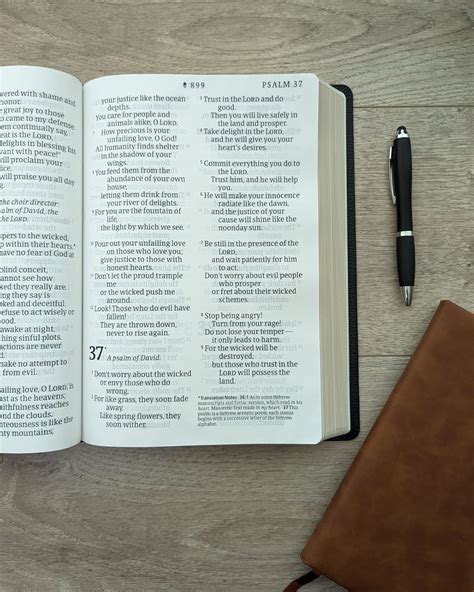 wered with shame and
honor.
e great joy to those
o came to my defense.
em continually say,
reat is the LORD,
o delights in blessing his
vant with peace!"
will proclaim your
will praise you all day
he choir director:
alm of David, the
peaks to the wicked,
p within their hearts.*
have no fear of God
blind conceit,
annot see how
ked they really are.
hing they say is
ked and deceitful.
efuse to act wisely or
awake at night,
hing sinful plots.
ctions are never
from evil.
iling love, O LORD, is
st as the heavens;
aithfulness reaches
ond the clouds.
ghteousness is like the
ty mountains,
899
PSALM 37
your justice like the ocean
depths.
You care for people and
animals alike, O LORD.
7 How precious is your
unfailing love, O God!
All humanity finds shelter
in the shadow of your
wings.
8 You feed them from the
abundance of your own
house,
letting them drink from
your river of delights.
9 For you are the fountain of
life,
the light by which we see.
10 Pour out your unfailing love
on those who love you;
give justice to those with
honest hearts.
11 Don't let the proud trample
me
or the wicked push me
around.
12 Look! Those who do evil have
fallen!
They are thrown down,
never to rise again.
37 A psalm of David.
1 Don't worry about the wicked
or envy those who do
wrong.
2 For like grass, they soon fade
away.
Like spring flowers, they
soon wither.
3 Trust in the LORD and do
good.
Then you will live safely in
the land and prosper.
4 Take delight in the LORD,
and he will give you your
heart's desires.
5 Commit everything you do to
the LORD.
Trust him, and he will help
you.
6 He will make your innocence
radiate like the dawn,
and the justice of your
cause will shine like the
noonday sun.
7 Be still in the presence of the
LORD,
and wait patiently for him
to act.
Don't worry about evil people
who prosper
or fret about their wicked
schemes.
8 Stop being angry!
Turn from your rage!
Do not lose your temper—
it only leads to harm.
9 For the wicked will be
destroyed,
but those who trust in the
LORD will possess the
land.
*Translation Notes 36:1 As in some Hebrew
manuscripts and Syriac version, which read in his
heart. Masoretic Text reads in my heart. 37 This
psalm is a Hebrew acrostic poem; each stanza
begins with a successive letter of the Hebrew
alphabet.